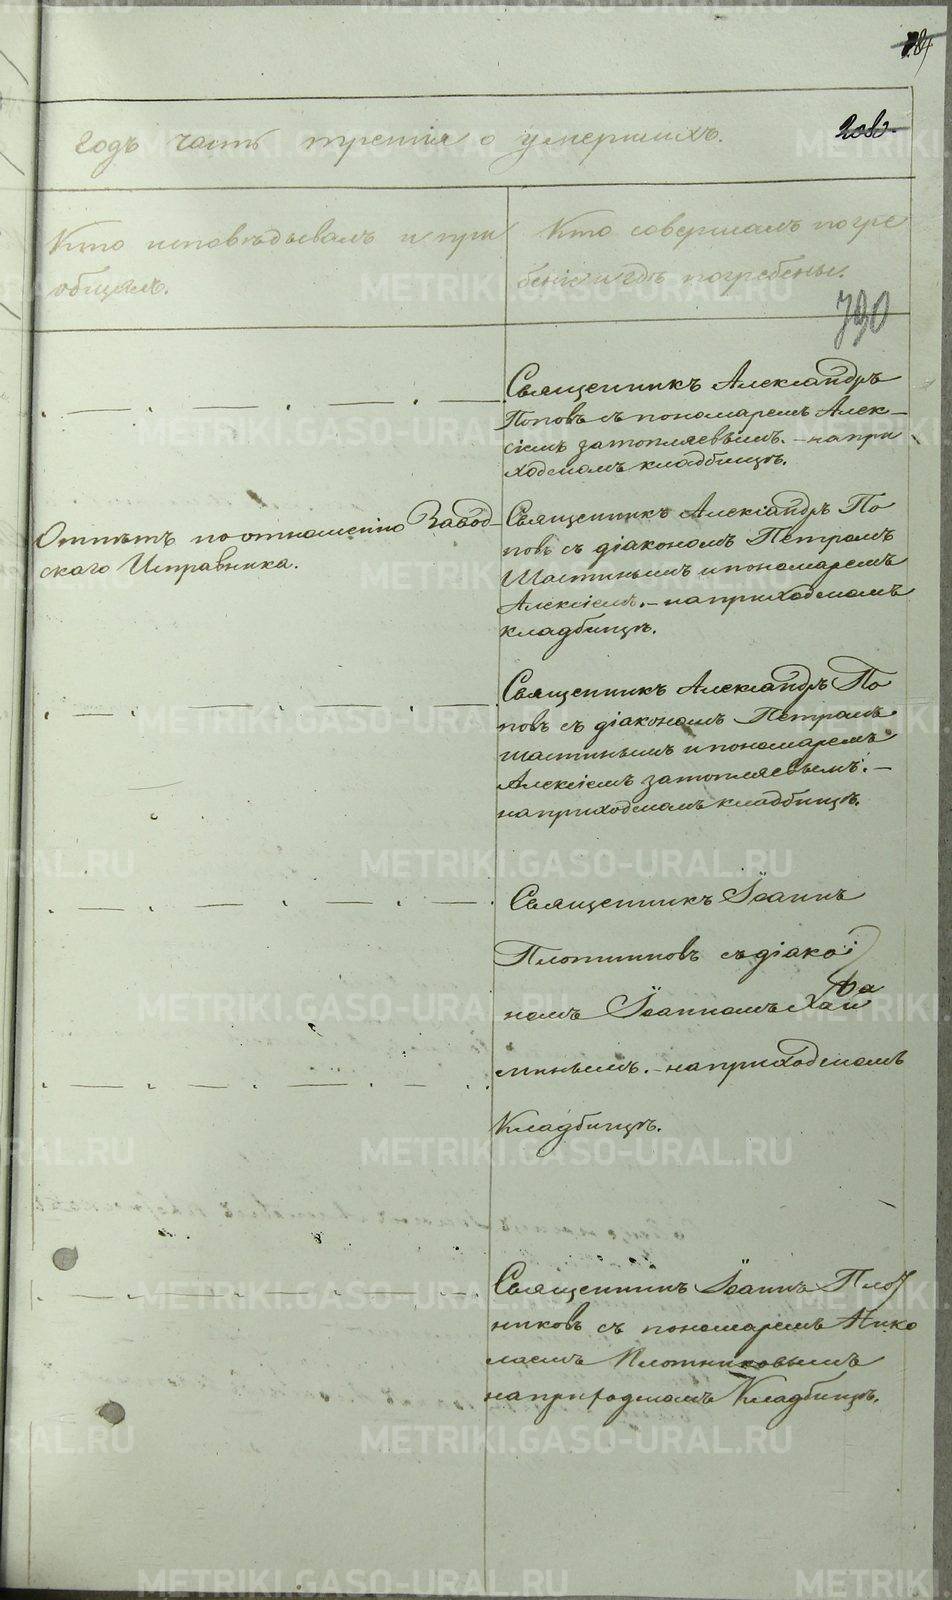 годъ часть третія о умершихъ.
Кто исповѣдывалъ и прі
общалъ.
Кто совершалъ погре
беніе и гдѣ погребены.
790
Священникъ Александръ
Поповъ съ пономаремъ Алек-
сіемъ Затопляевымъ. - на при
ходскомъ кладбищѣ.
Отпѣтъ по отношенію Завод-
скаго Исправника.
Священникъ Александръ По
повъ съ діакономъ Петромъ
Шастинымъ и пономаремъ
Алексіемъ. - на приходскомъ
кладбищѣ.
Священникъ Александръ По
повъ съ діакономъ Петромъ
Шастинымъ и пономаремъ
Алексіемъ Затопляевымъ. -
на приходскомъ кладбищѣ.
Священникъ Іоаннъ
Плотниковъ съ діако
номъ Іоанномъ
на приходскомъ
Кладбищѣ.
Священникъ Іоаннъ Плот
никовъ съ пономаремъ Нико
лаемъ Плотниковымъ
на приходскомъ Кладбищѣ.
METRIKI.GASO-URAL.RU